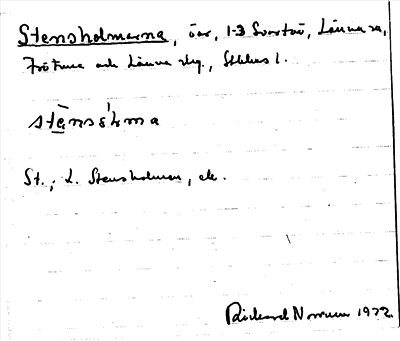 Stensholmarna, öar, 1-3 Svartsö, Länna sn,
Frötuna och Länna skg., Sthlms l.
stènsɷ́lma
St., L. Stensholmen, ek.
Rickard Norrman 1922.